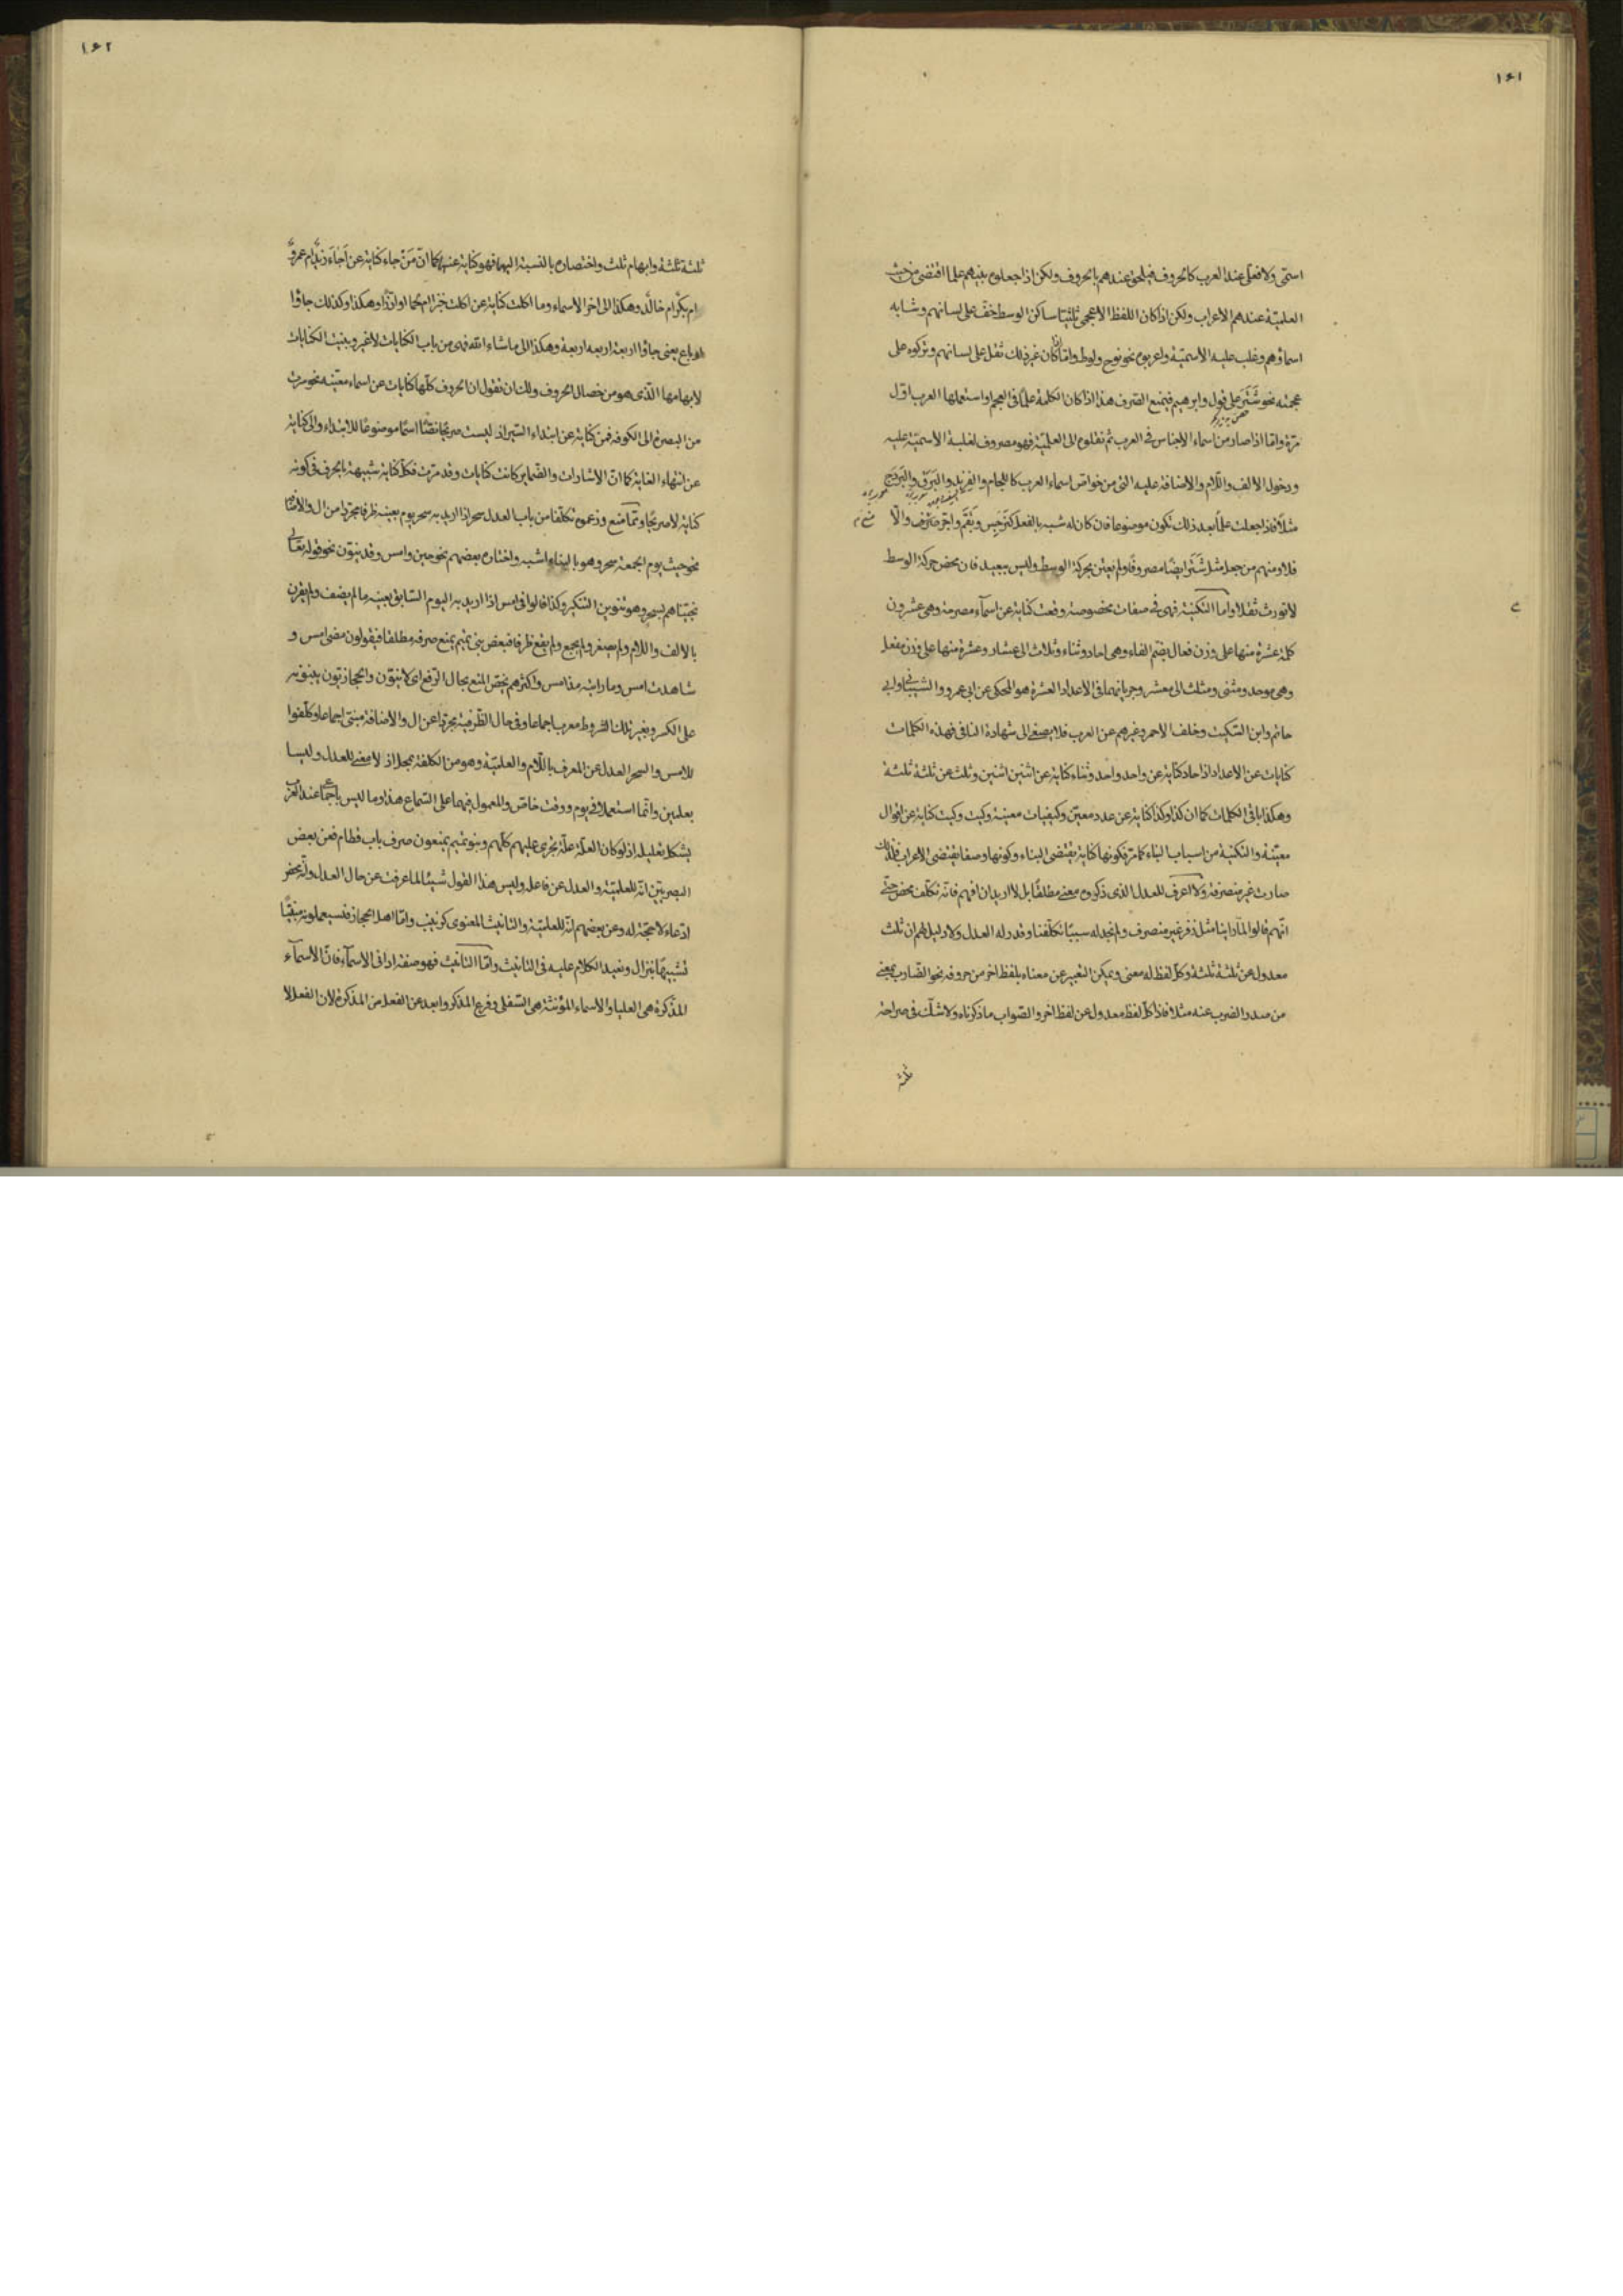 ١٦١
اسمى ولا فعلى عند العرب كالحروف فيلحق عندهم بالحروف ولكن اذا جعلوه بينهم علما اقتضى من حيث
العلمية عندهم الاعراب ولكن اذا كان اللفظ الاعجمى ثلثيا ساكن الوسط خف على لسانهم وشابه
اسماؤهم وغلب عليه الاسمية واعربوه نحو نوح ولوط واما ان كان غير ذلك ثقل على لسانهم وتركوه على
عجمته نحو شتر على قول وابرهيم فيمنع الصرف هذا اذا كان الكلمة علما فى العجم واستعملها العرب اول
مرة واما اذا صار من اسماء الاجناس فى العرب ثم نقلوه الى العلمية فهو مصروف لغلبة الاسمية عليه
ودخول الالف واللام والاضافة عليه التى من خواص اسماء العرب كاللجام والفرند والبرق والبردج
مثلا فاذا جعلت علما بعد ذلك تكون موضوعا فان كان له شبه بالفعل كنرجس وبقم واجر منع صرف والا
فلا ومنهم من جعل مثل شتر ايضا مصروفا ولم يعتن بحركة الوسط وليس ببعيد فان محض حركة الوسط
لا تورث ثقلا واما التكنية فهى فى صفات مخصوصة وقعت كناية عن اسماء مصرحة وهى عشرون
كلمة عشرة منها على وزن فعال بضم الفاء وهى احاد وثناء وثلاث الى عشار وعشرة منها على وزن مفعل
وهى موحد ومثنى ومثلث الى معشر وجريانهما فى الاعداد العشرة هو المحكى عن ابى عمرو والشيبانى وابى
حاتم وابن السكيت وخلف الاحمر وغيرهم عن العرب فلا يصغى الى شهادة النافى فهذه الكلمات
كنايات عن الاعداد اذ احاد كناية عن واحد واحد وثناء كناية عن اثنين اثنين وثلث عن ثلثة ثلثة
وهكذا باقى الكلمات كما ان كذا وكذا كناية عن عدد معين وكيفيات معينة وكيت وكيت كناية عن اقوال
معينة والتكنية من اسباب البناء كما مر فكونها كناية يقتضى البناء وكونها وصفا يقتضى الاعراب فلذلك
صارت غير منصرفة ولا اعرف للعدل الذى ذكروه معنى مطلقا بل لا اريد ان افهم فانه تكلف محض حتى
انهم قالوا لما راينا مثل زفر غير منصرف ولم نجد له سببا تكلفنا وقدر له العدل ولا دليل لهم ان ثلث
معدول عن ثلثة ثلثة وكل لفظ له معنى ويمكن التعبير عن معناه بلفظ اخر من حروفه نحو الضارب بمعنى
من صدر الضرب عنه مثلا فاذا كل لفظ معدول عن لفظ اخر والصواب ما ذكرناه ولا شك فى صراحة
ثلثة
١٦٢
ثلثة ثلثة وابهام ثلث واختصاره بالنسبة اليها فهو كناية عنها كما ان من جاء كناية عن اجاء زيد ام عمرو
ام بكر ام خالد وهكذا الى اخر الاسماء وما اكلت كناية عن اكلت خبزا ام لحما او ارزا وهكذا وكذلك جاؤا
رباع يعنى جاؤا اربعة اربعة اربعة وهكذا الى ما شاء الله فهى من باب الكنايات لا غير وبنيت الكنايات
لابهامها الذى هو من خصال الحروف ولك ان تقول ان الحروف كلها كنايات عن اسماء معينة نحو سرت
من البصرة الى الكوفة فمن كناية عن ابتداء السير اذ ليست صريحا نصا اسما موضوعا للابتداء والى كناية
عن انتهاء الغاية كما ان الاشارات والضماير كانت كنايات وقد مرت فكل كناية شبيهة بالحرف فى كونه
كناية لا صريحا ومما منع وزعموه تكلفا من باب العدل سحر اذا اريد به سحر يوم بعينه ظرفا مجردا من ال والاضافة
نحو جئت يوم الجمعة سحر وهو بالبناء اشبه واختاره بعضهم نحو حين وامس وقد ينون نحو قوله تعالى
نجيناهم بسحر وهو تنوين التنكير وكذا قالوا فى امس اذا اريد به اليوم السابق بعينه ما لم يضف ولم يقرن
بالالف واللام ولم يصغر ولم يجمع ولم يقع ظرفا فبعض بنى تميم يمنع صرفه مطلقا فيقولون مضى امس و
شاهدت امس وما رايته مذ امس واكثرهم يخص المنع بحال الرفع اى لا ينون والحجازيون يبنونه
على الكسر وبغير تلك الشروط معرب اجماعا وفى حال الظرفية مجردا عن ال والاضافة مبنى اجماعا وكلفوا
للامس والسحر العدل عن المعرف باللام والعلمية وهو من الكلفة بمحل اذ لا معنى للعدل وليسا
بعلمين وانما استعملا فى يوم ووقت خاص والمعمول فيهما على السماع هذا وما ليس باجماع عند العرب
يشكل تعليله اذ لو كان العلة علة تجرى عليهم كلهم وبنو تميم يمنعون صرف باب قطام فعن بعض
البصريين انه للعلمية والعدل عن فاعلة وليس هذا القول شيئا لما عرفت عن حال العدل وانه محض
ادعاء لا حجة له وعن بعضهم انه للعلمية والتانيث المعنوى كزينب واما اهل الحجاز فيستعملونه مبنيا
تشبيها بنزال ونعيد الكلام عليه فى التانيث واما التانيث فهو صفة ادانى الاسماء فان الاسماء
المذكرة هى العليا والاسماء المؤنثة هى السفلى وفرع المذكر وابعد عن الفعل من المذكر لان الفعل لا